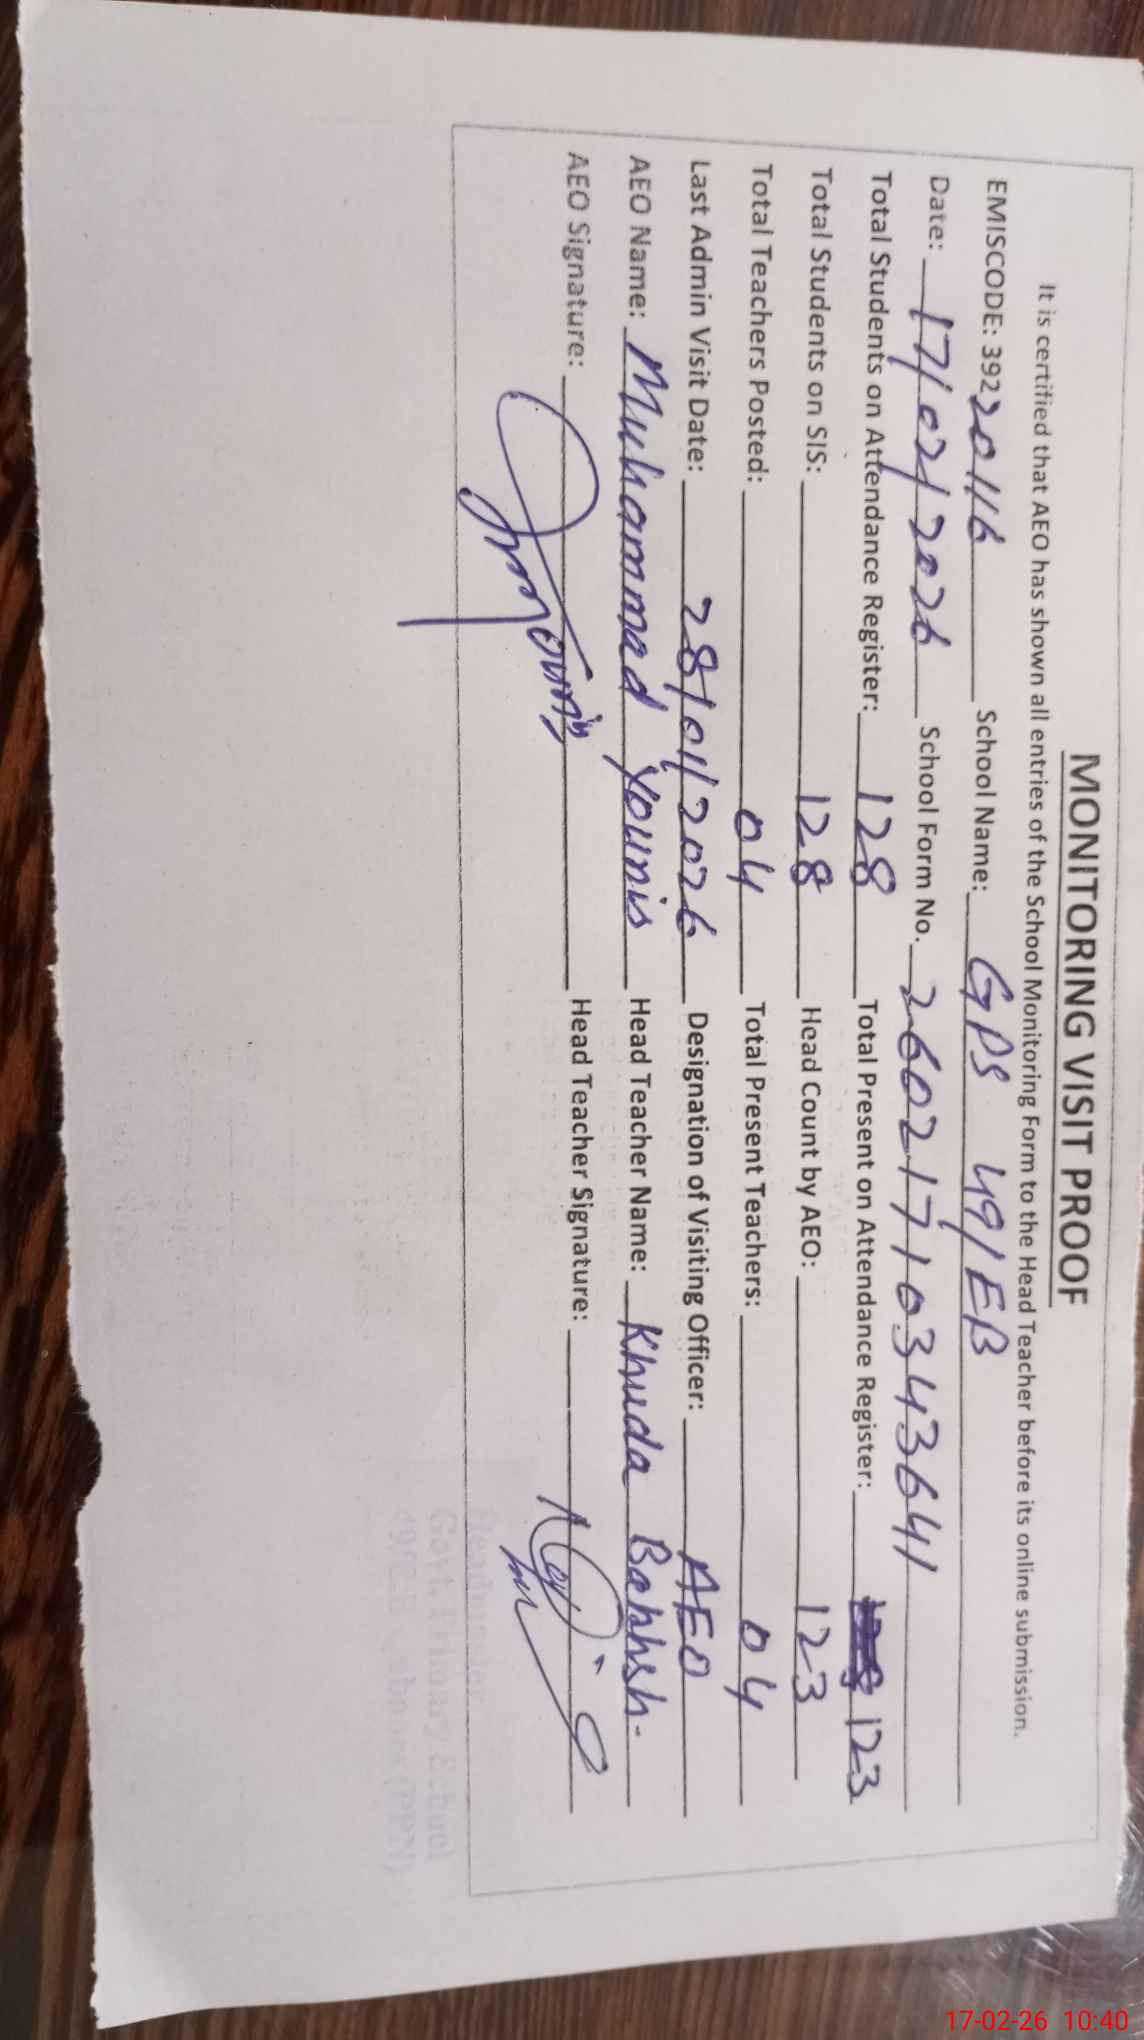 MONITORING VISIT PROOF
It is certified that AEO has shown all entries of the School Monitoring Form to the Head Teacher before its online submission.
EMISCODE: 39220116 School Name: GPS 49/EB
Date: 17/02/2026 School Form No. 26021710343641
Total Students on Attendance Register: 128 Total Present on Attendance Register: 123
Total Students on SIS: 128 Head Count by AEO: 123
Total Teachers Posted: 04 Total Present Teachers: 04
Last Admin Visit Date: 28/01/2026 Designation of Visiting Officer: AEO
AEO Name: Muhammad Younis Head Teacher Name: Khuda Bakhsh.
AEO Signature: Head Teacher Signature:
Headmaster
Govt. Primary School
49/E.B
17-02-26 10:40